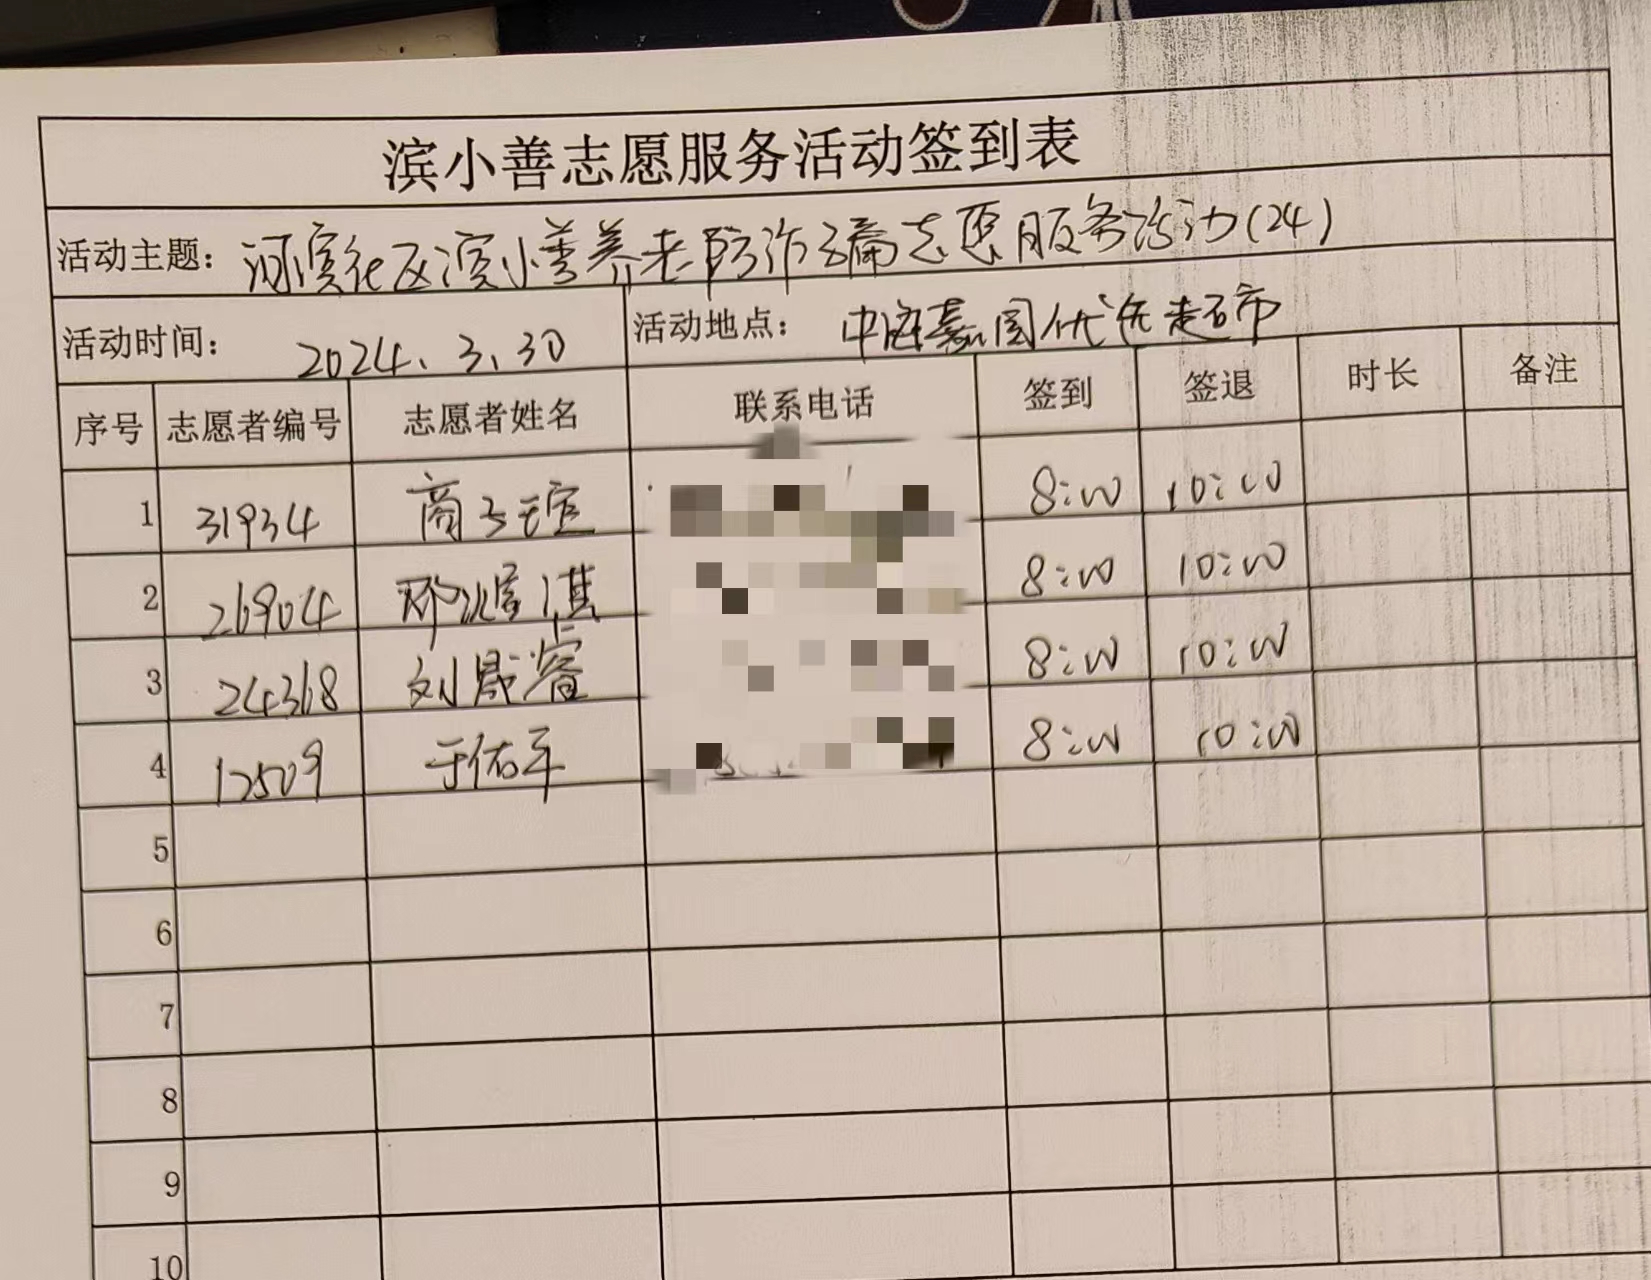 滨小善志愿服务活动签到表
活动主题：河滨社区滨小善养老防诈骗志愿服务活动(24)
活动时间：2024.3.30 活动地点：中海嘉园优选超市
序号 志愿者编号 志愿者姓名 联系电话 签到 签退 时长 备注
1 31934 商子瑄 8:00 10:00
2 26904 8:00 10:00
3 24368 刘晟睿 8:00 10:00
4 12509 于佑平 8:00 10:00
5
6
7
8
9
10